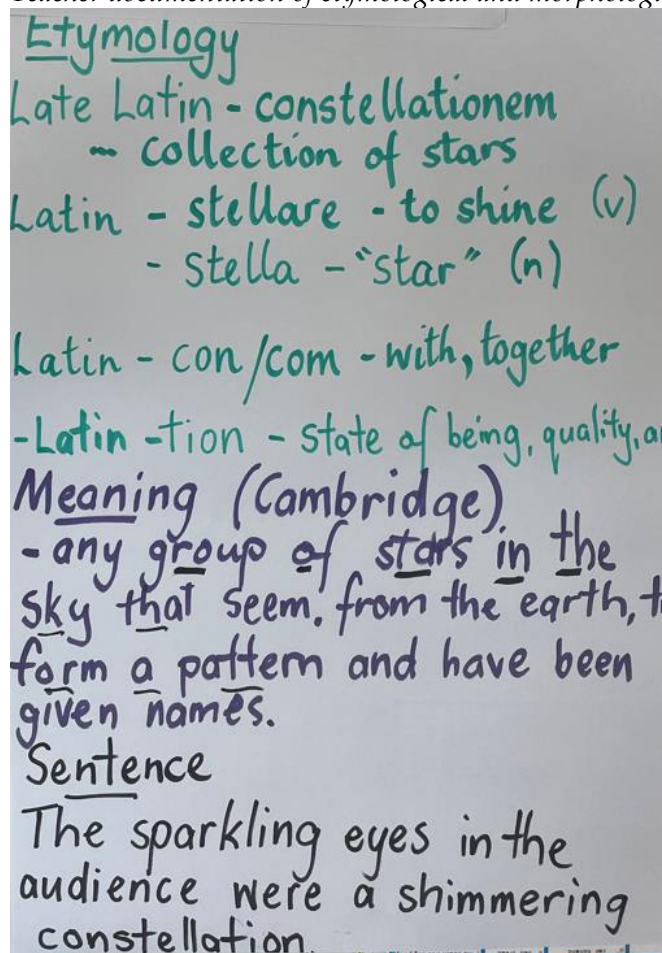 Etymology
Late Latin - constellationem
- collection of stars
Latin - stellare - to shine (v)
- stella - "star" (n)
Latin - con/com - with, together
-Latin -tion - state of being, quality,
Meaning (Cambridge)
- any group of stars in the
sky that seem, from the earth,
form a pattern and have been
given names.
Sentence
The sparkling eyes in the
audience were a shimmering
constellation.